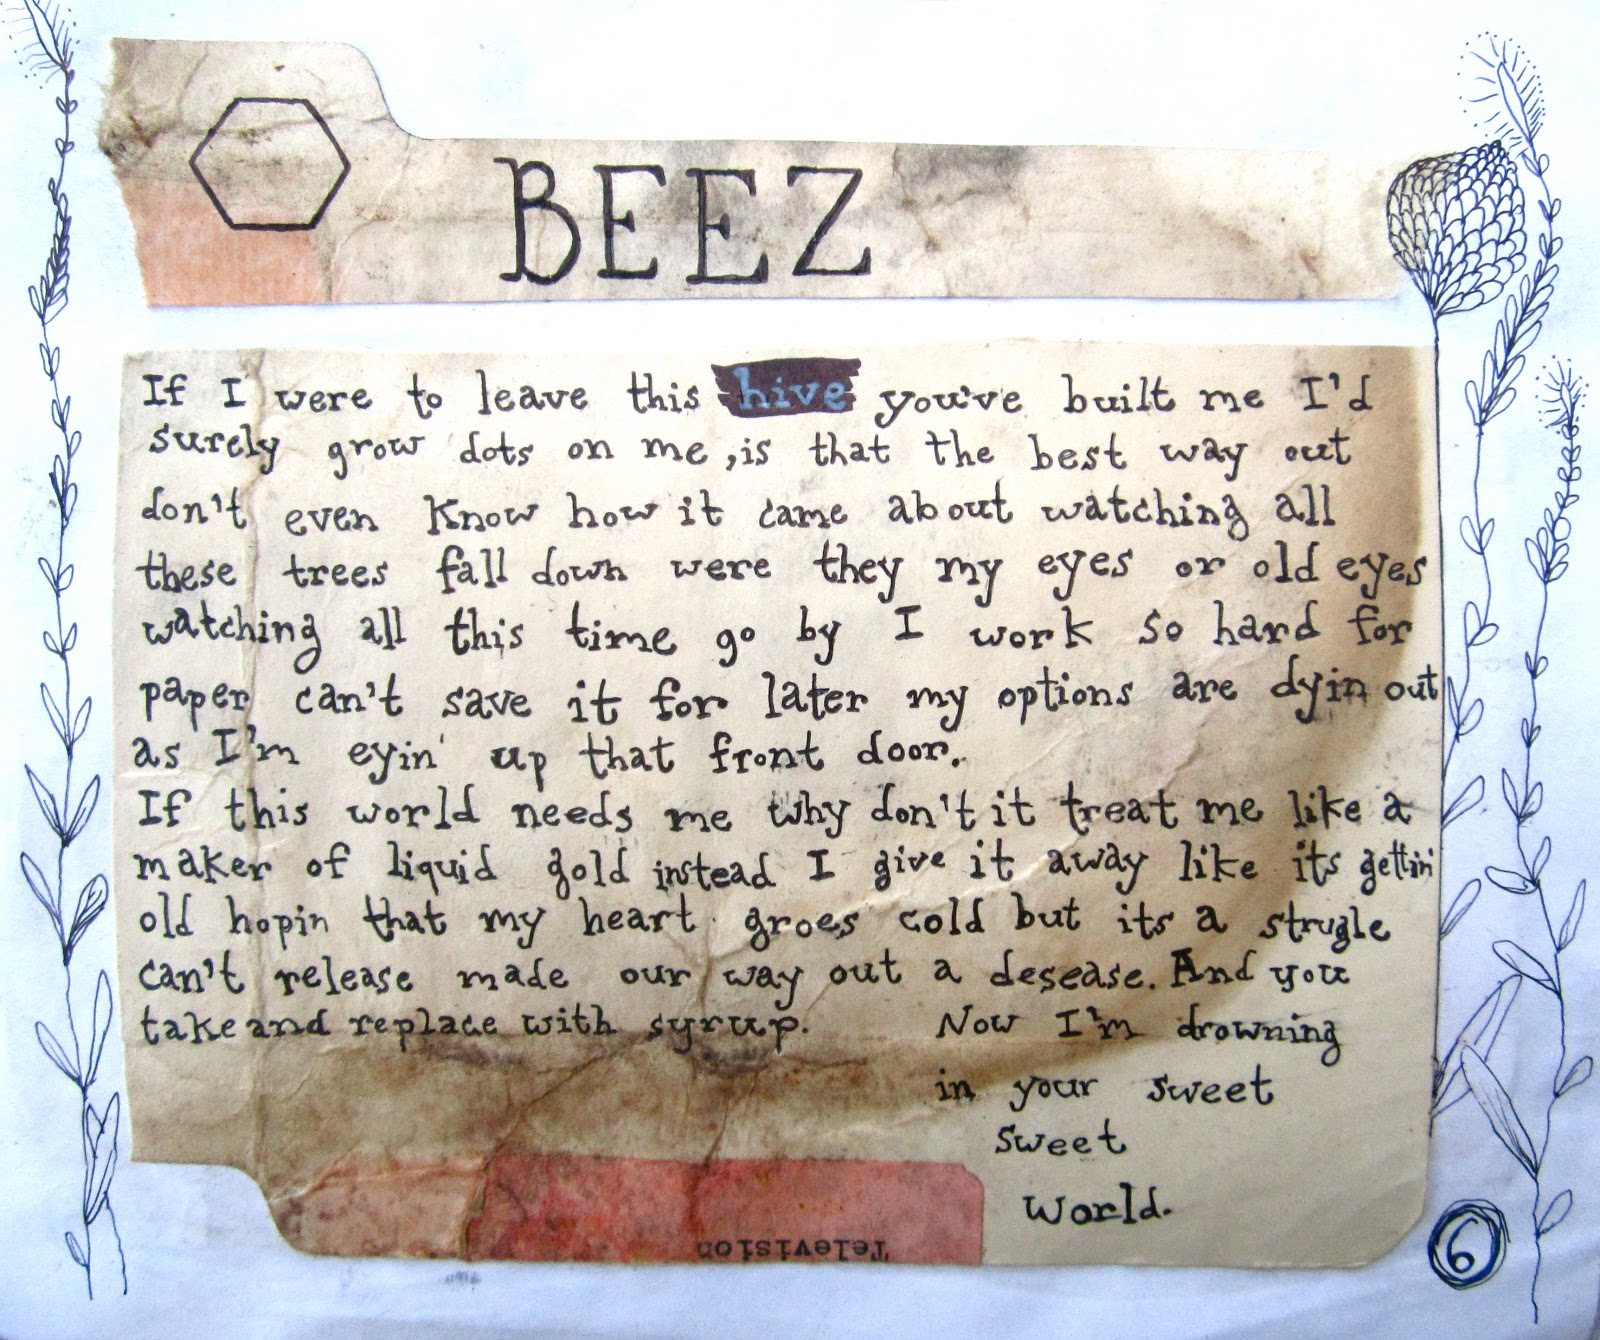 BEEZ
If I were to leave this hive you've built me I'd
surely grow dots on me, is that the best way out
don't even know how it came about watching all
these trees fall down were they my eyes or old eyes
watching all this time go by I work so hard for
paper can't save it for later my options are dyin out
as I'm eyin' up that front door.
If this world needs me why don't it treat me like a
maker of liquid gold instead I give it away like its gettin'
old hopin that my heart groes cold but its a strugle
can't release made our way out a desease. And you
take and replace with syrup. Now I'm drowning
in your sweet
sweet
world.
Television
6